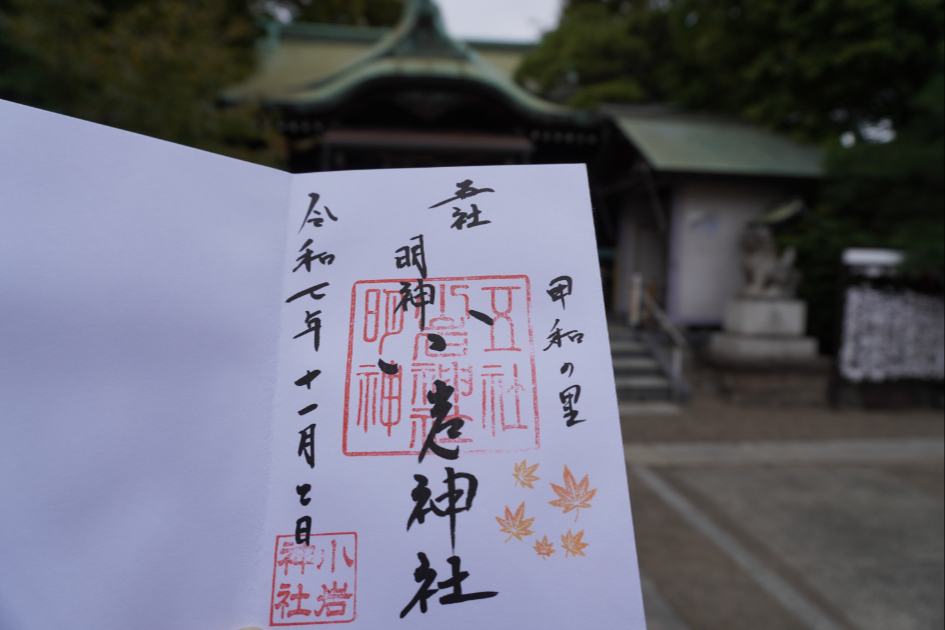 甲和の里
五社
明神
小岩神社
令和七年十一月日
五社
小岩神社
明神
小岩
神社